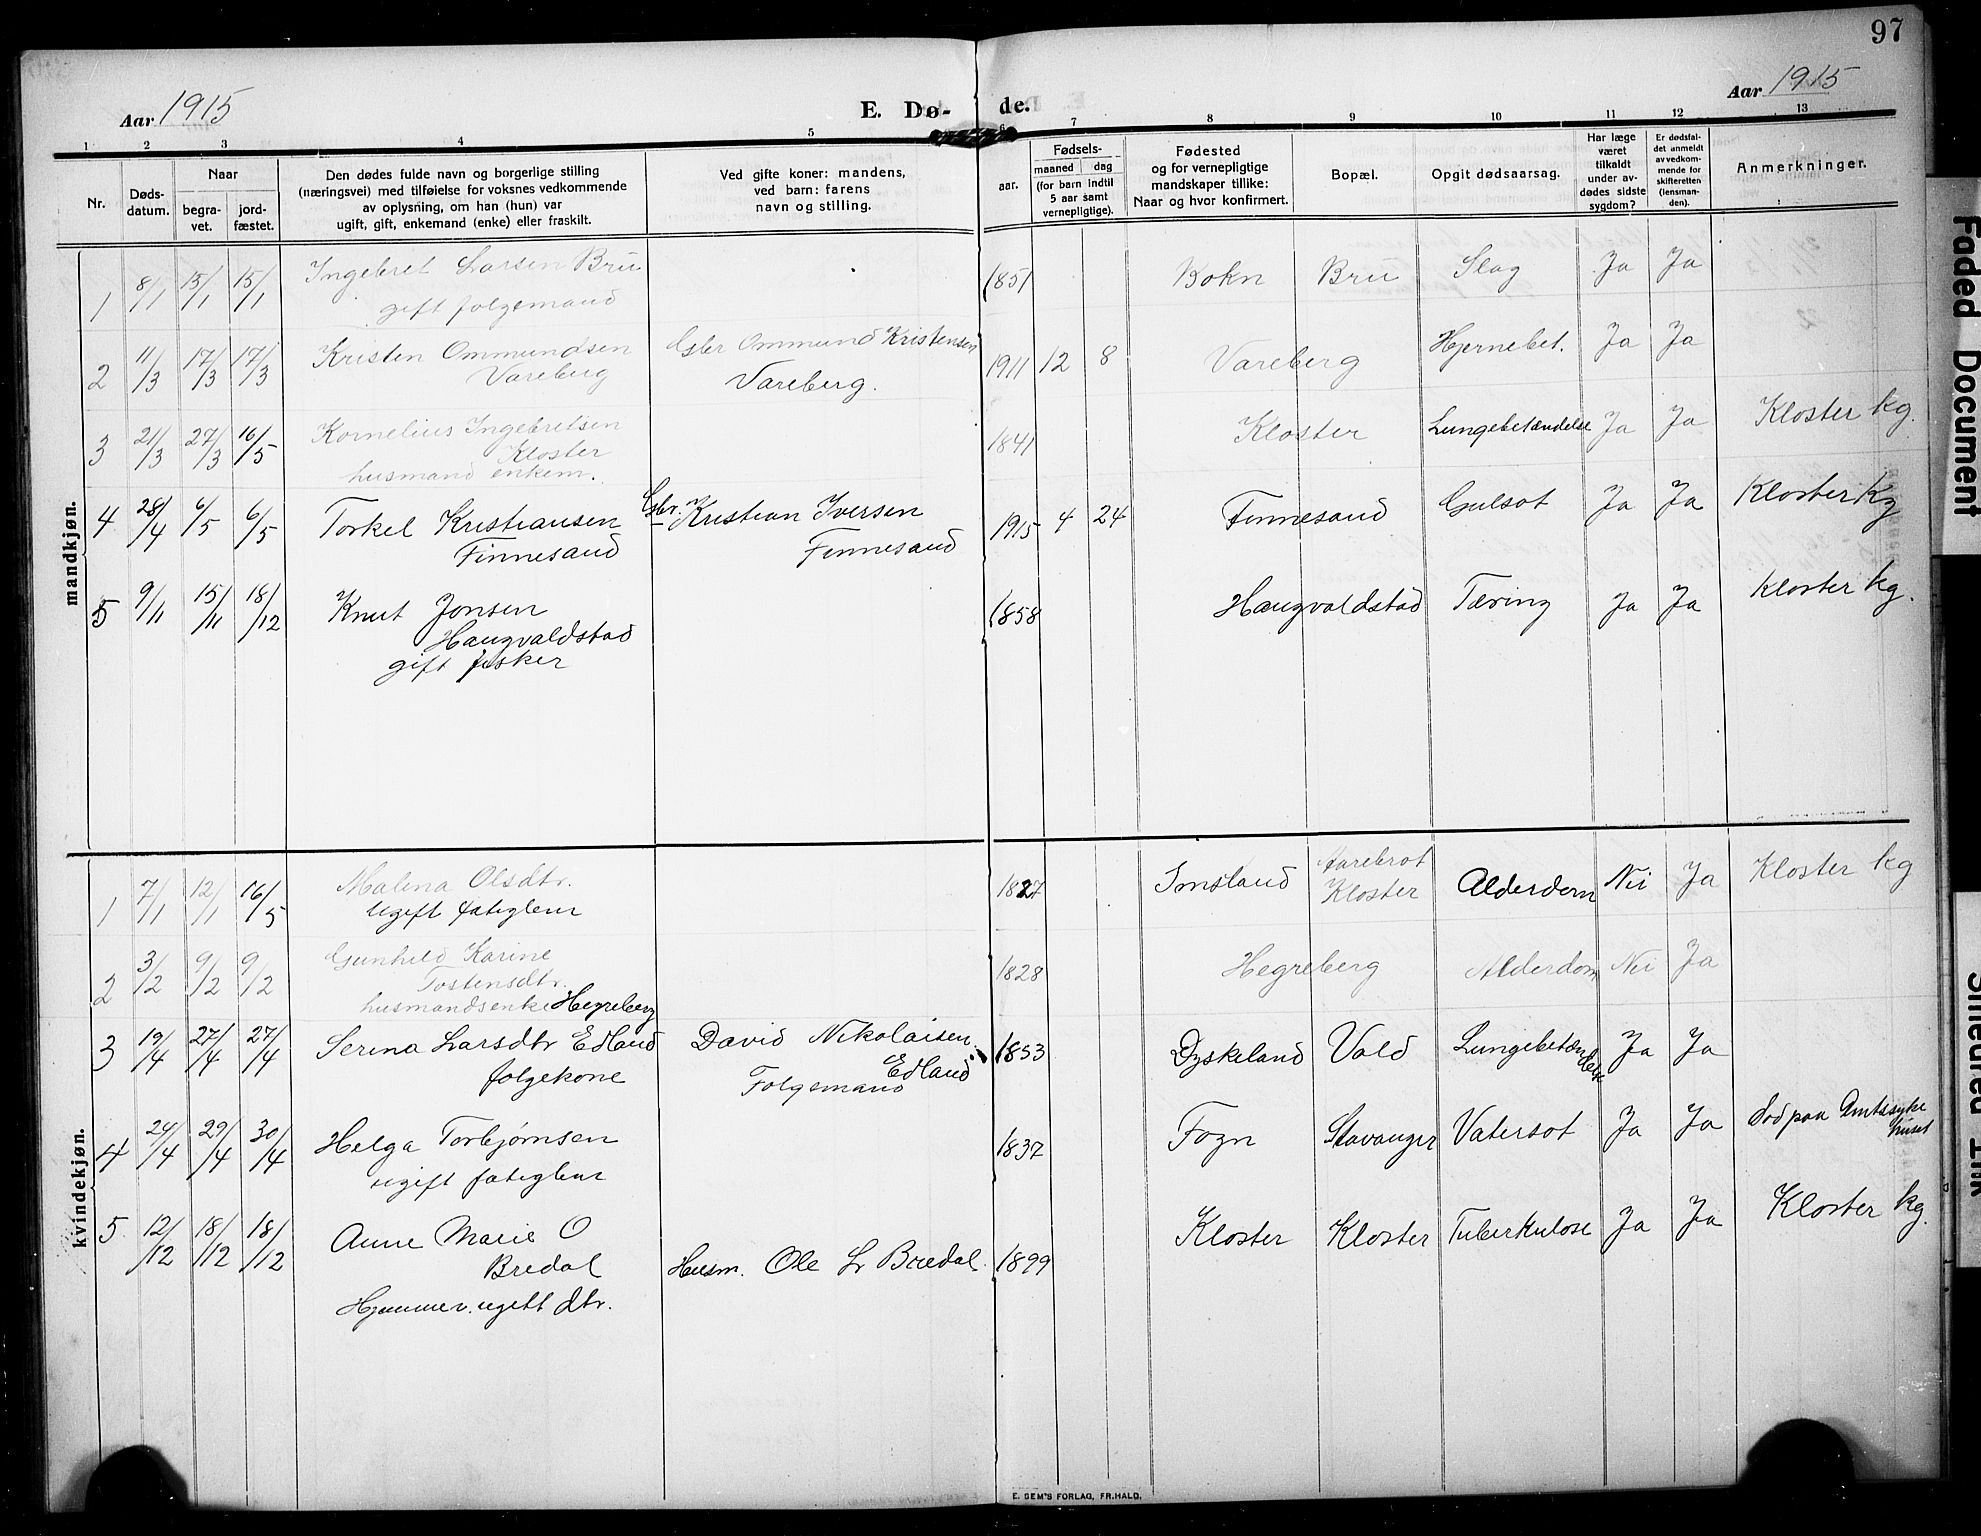 97
Aar 1915
E. Dø- de.
Aar 1915
1 2 3 4 5 6 7 8 9 10 11 12 13
Nr.
Døds-
datum.
Naar
begra-
vet.
jord-
fæstet.
Den dødes fulde navn og borgerlige stilling
(næringsvei) med tilføielse for voksnes vedkommende
av oplysning, om han (hun) var
ugift, gift, enkemand (enke) eller fraskilt.
Ved gifte koner: mandens,
ved barn: farens
navn og stilling.
Fødsels-
aar.
maaned dag
(for barn indtil
5 aar samt
vernepligtige).
Fødested
og for vernepligtige
mandskaper tillike:
Naar og hvor konfirmert.
Bopæl.
Opgit dødsaarsag.
Har læge
været
tilkaldt
under av-
dødes sidste
sygdom?
Er dødsfal-
det anmeldt
av vedkom-
mende for
skifteretten
(lensman-
den).
Anmerkninger.
mandkjøn.
1 8/1 15/1 15/1 Ingebret Larsen Bru 1851 Bokn Bru Slag Ja Ja
gift folgemand
2 11/3 17/3 17/3 Kristen Ommundsen Gbr Ommund Kristensen 1911 12 8 Vareberg Hjernebet. Ja Ja
Vareberg Vareberg.
3 21/3 27/3 16/5 Kornelius Ingebretsen 1841 Kloster Lungebetændelse Ja Ja Kloster kg.
Kloster
husmand enkem.
4 28/4 6/5 6/5 Torkel Kristiansen Gbr. Kristian Iversen 1915 4 24 Finnesand Gulsot Ja Ja Kloster kg
Finnesand Finnesand
5 9/11 15/11 18/12 Knut Jonsen 1858 Haugvaldstad Tæring Ja Ja Kloster kg.
Haugvaldstad
gift fisker
kvindekjøn.
1 7/1 12/1 16/5 Malena Olsdtr. 1827 Imsland Aarebrot Kloster Alderdom Nei Ja Kloster kg
Ugift fatiglem
2 3/2 9/2 9/2 Gunhild Karine 1828 Hegreberg Alderdom Nei Ja
Tostensdtr.
husmandsenke Hegreberg
3 19/4 27/4 27/4 Serina Larsdtr Edland David Nikolaisen 1853 Dyskeland Vold Lungebetændelse Ja Ja
folgekone Edland
Folgemand
4 24/4 29/4 30/4 Helga Torbjørnsen 1837 Fogn Stavanger Vatersot Ja Ja Død paa Amtssyke
huset
ugift fatiglem
5 12/12 18/12 18/12 Anne Marie O 1899 Kloster Kloster Tuberkulose Ja Ja Kloster kg.
Bredal Husm. Ole L Bredal.
Hjemmev. ugift dtr.
E. SEM'S FORLAG, FR.HALD.
Faded Document
Smeared Ink